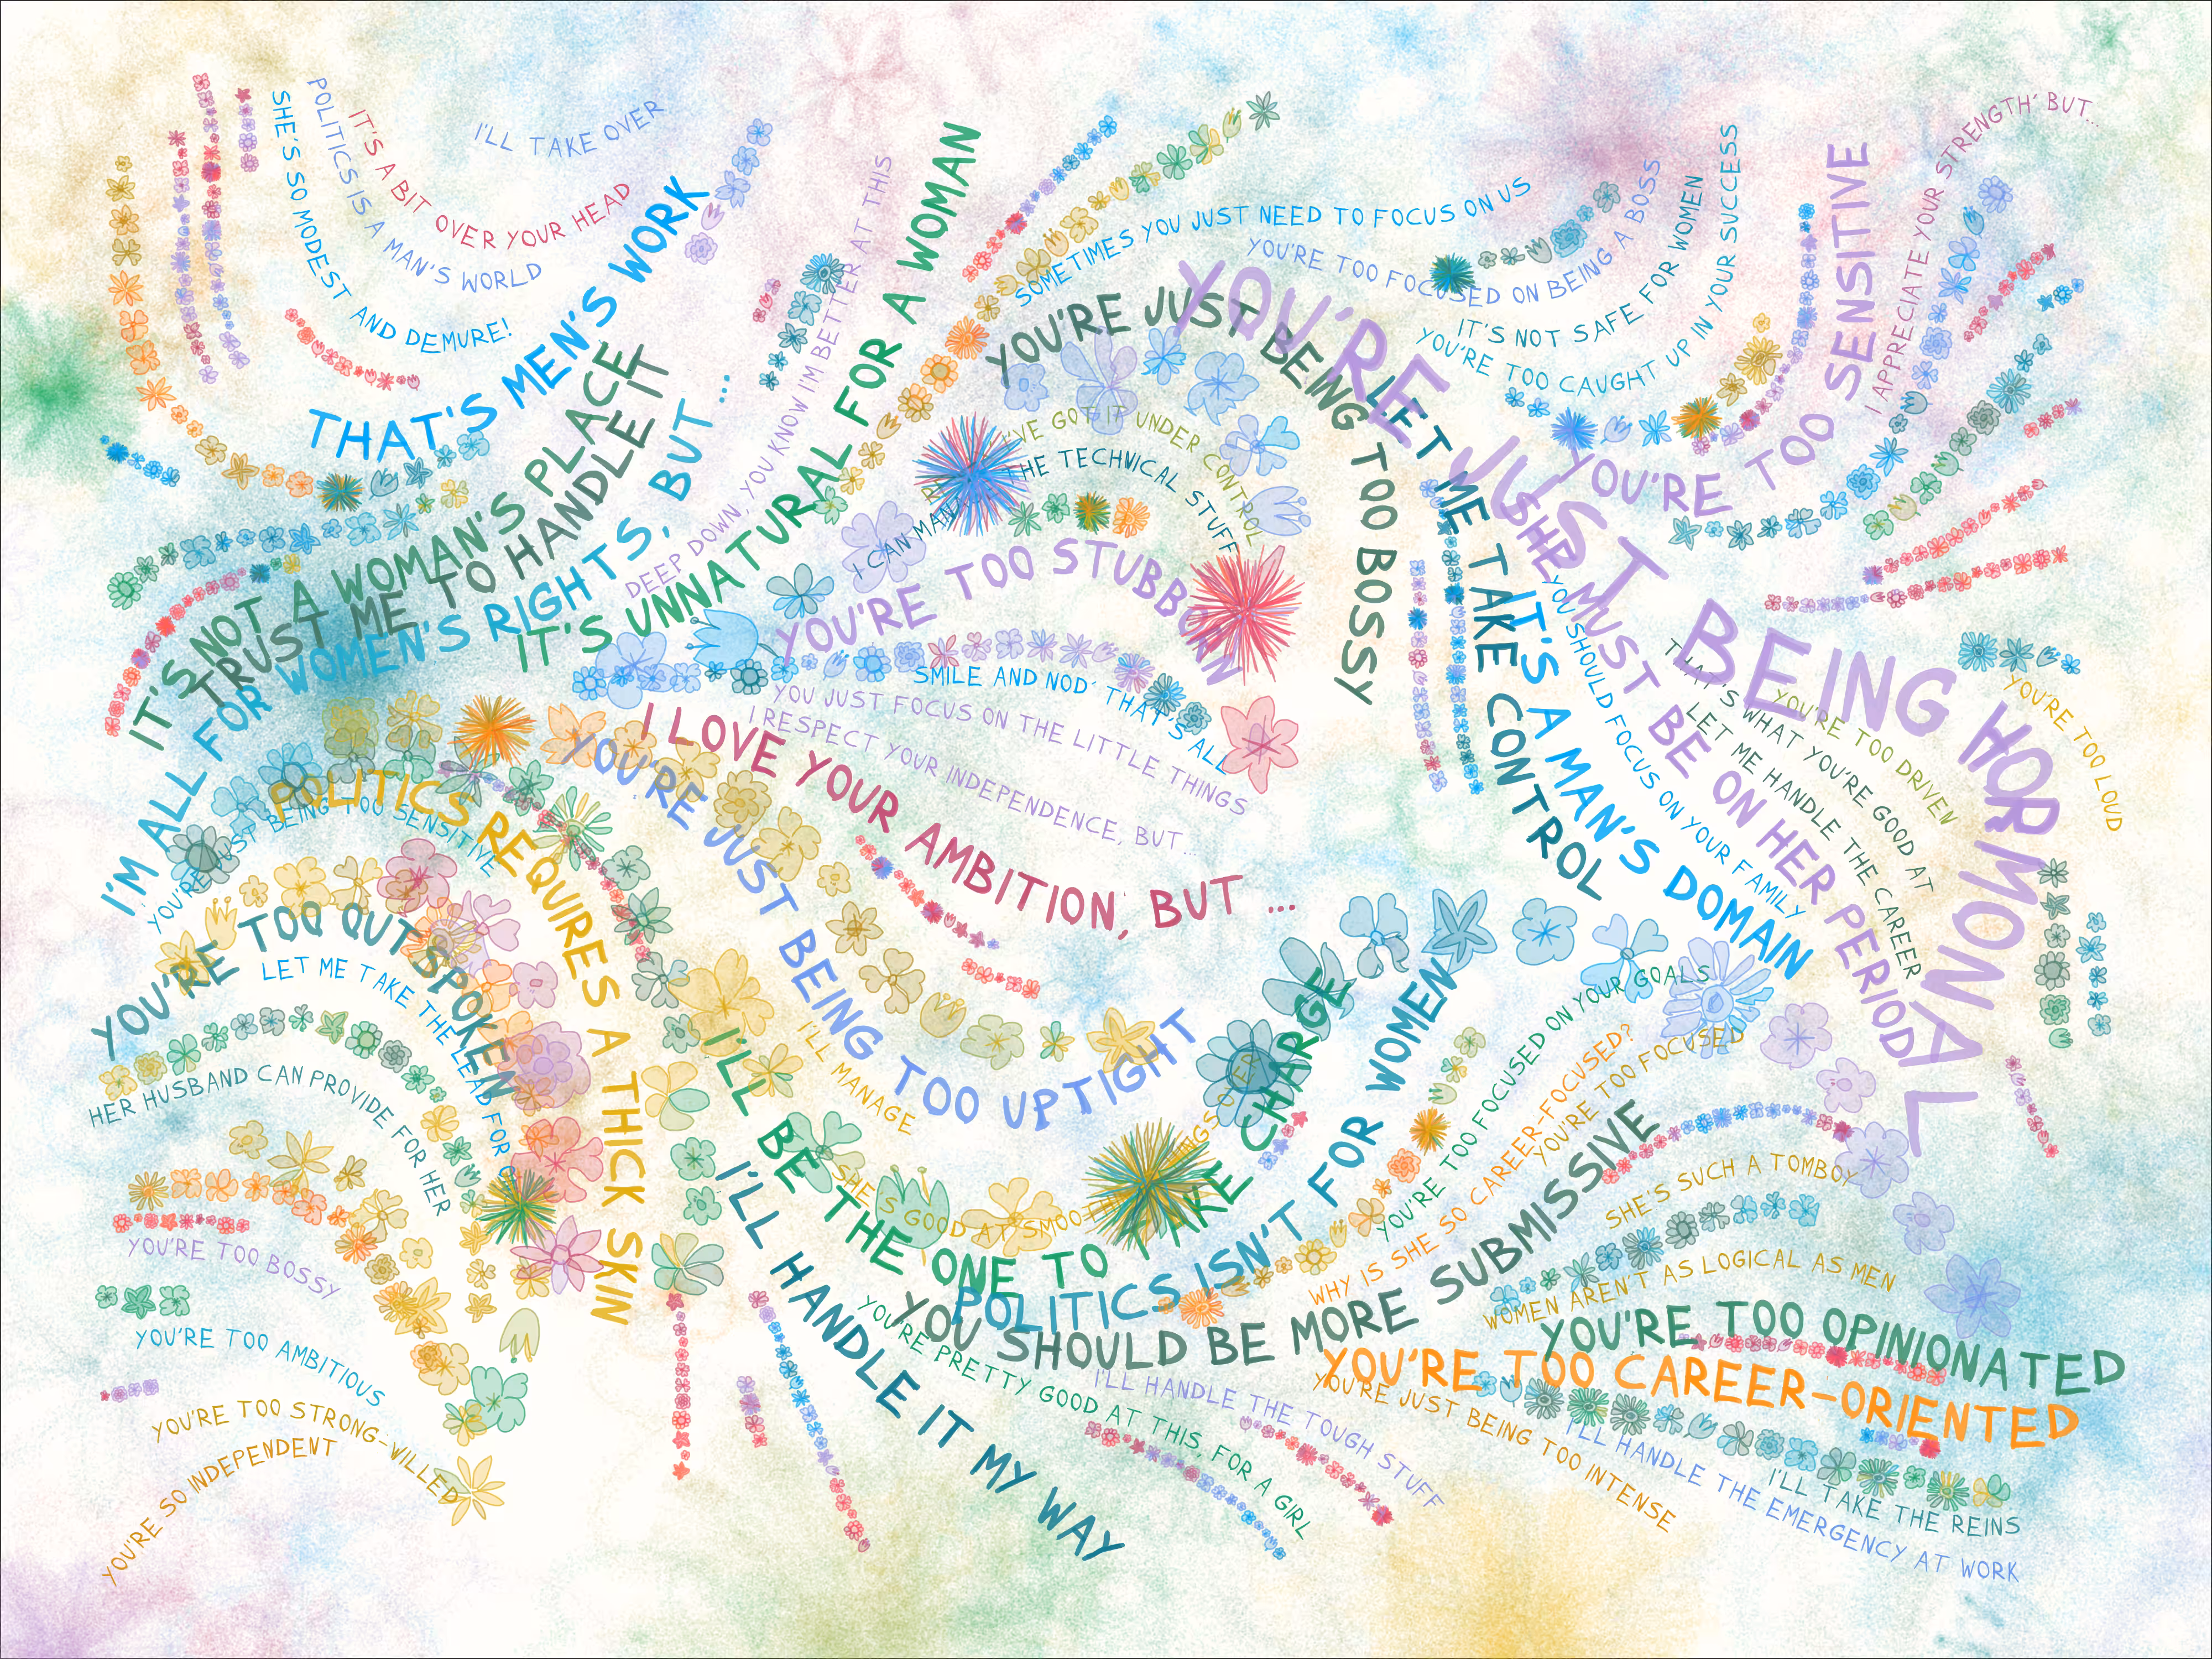 I'LL TAKE OVER
IT'S A BIT OVER YOUR HEAD
POLITICS IS A MAN'S WORLD
SHE'S SO MODEST AND DEMURE!
THAT'S MEN'S WORK
IT'S NOT A WOMAN'S PLACE
TRUST ME TO HANDLE IT
I'M ALL FOR WOMEN'S RIGHTS, BUT ...
DEEP DOWN, YOU KNOW I'M BETTER AT THIS
IT'S UNNATURAL FOR A WOMAN
SOMETIMES YOU JUST NEED TO FOCUS ON US
YOU'RE TOO FOCUSED ON BEING A BOSS
IT'S NOT SAFE FOR WOMEN
YOU'RE TOO CAUGHT UP IN YOUR SUCCESS
YOU'RE TOO SENSITIVE
I APPRECIATE YOUR STRENGTH' BUT...
YOU'RE JUST BEING TOO BOSSY
YOU'RE JUST BEING HORMONAL
I'VE GOT IT UNDER CONTROL
I CAN MANAGE THE TECHNICAL STUFF
YOU'RE TOO STUBBORN
SMILE AND NOD' THAT'S ALL
YOU JUST FOCUS ON THE LITTLE THINGS
I RESPECT YOUR INDEPENDENCE, BUT...
I LOVE YOUR AMBITION, BUT ...
YOU'RE JUST BEING TOO UPTIGHT
LET ME TAKE CONTROL
IT'S A MAN'S DOMAIN
YOU SHOULD FOCUS ON YOUR FAMILY
SHE MUST BE ON HER PERIOD
THAT'S WHAT YOU'RE GOOD AT
LET ME HANDLE THE CAREER
YOU'RE TOO DRIVEN
YOU'RE TOO LOUD
POLITICS REQUIRES A THICK SKIN
YOU'RE JUST BEING TOO SENSITIVE
YOU'RE TOO OUTSPOKEN
LET ME TAKE THE LEAD FOR
HER HUSBAND CAN PROVIDE FOR HER
YOU'RE TOO BOSSY
YOU'RE TOO AMBITIOUS
YOU'RE TOO STRONG-WILLED
YOU'RE SO INDEPENDENT
I'LL MANAGE
SHE'S GOOD AT SMOOTHING THINGS OVER
I'LL BE THE ONE TO TAKE CHARGE
POLITICS ISN'T FOR WOMEN
I'LL HANDLE IT MY WAY
YOU SHOULD BE MORE SUBMISSIVE
YOU'RE TOO FOCUSED ON YOUR GOALS
WHY IS SHE SO CAREER-FOCUSED?
YOU'RE TOO FOCUSED
SHE'S SUCH A TOMBOY
WOMEN AREN'T AS LOGICAL AS MEN
YOU'RE TOO OPINIONATED
YOU'RE TOO CAREER-ORIENTED
YOU'RE PRETTY GOOD AT THIS, FOR A GIRL
I'LL HANDLE THE TOUGH STUFF
YOU'RE JUST BEING TOO INTENSE
I'LL HANDLE THE EMERGENCY AT WORK
I'LL TAKE THE REINS